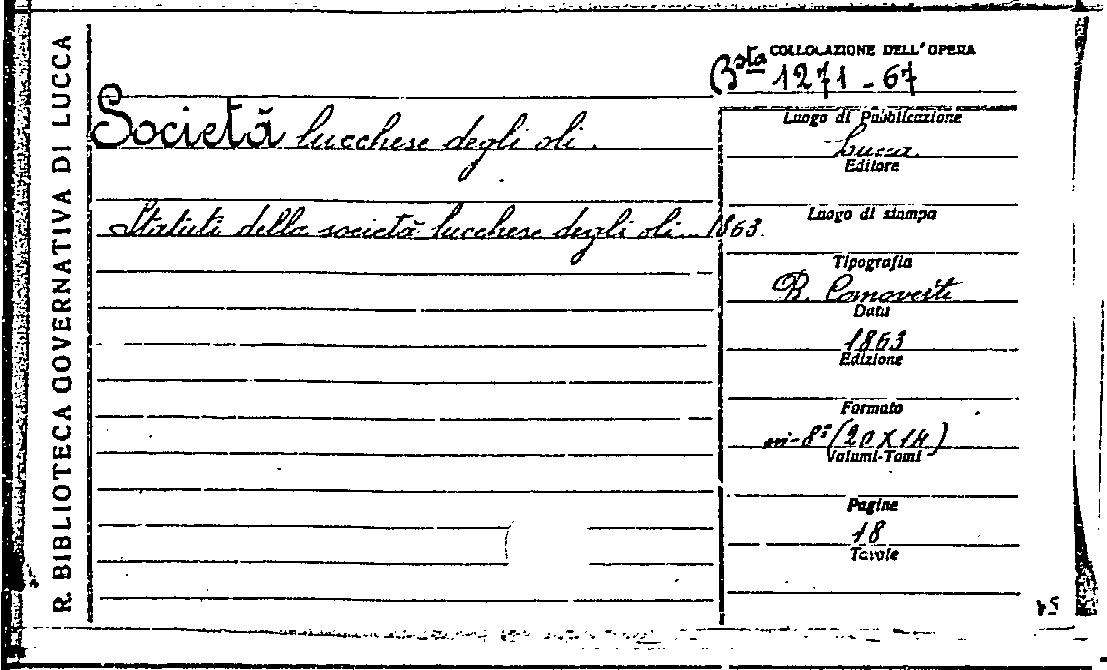 R. BIBLIOTECA GOVERNATIVA DI LUCCA
COLLOCAZIONE DELL'OPERA
Bsta 1271 - 67
Società lucchese degli oli.
Statuti della società lucchese degli oli. 1863.
Luogo di Pubblicazione
Lucca.
Editore
Luogo di stampa
Tipografia
B. Canovetti
Data
1863
Edizione
Formato
in-8° (20 X 14)
Volumi-Tomi
Pagine
18
Tavole